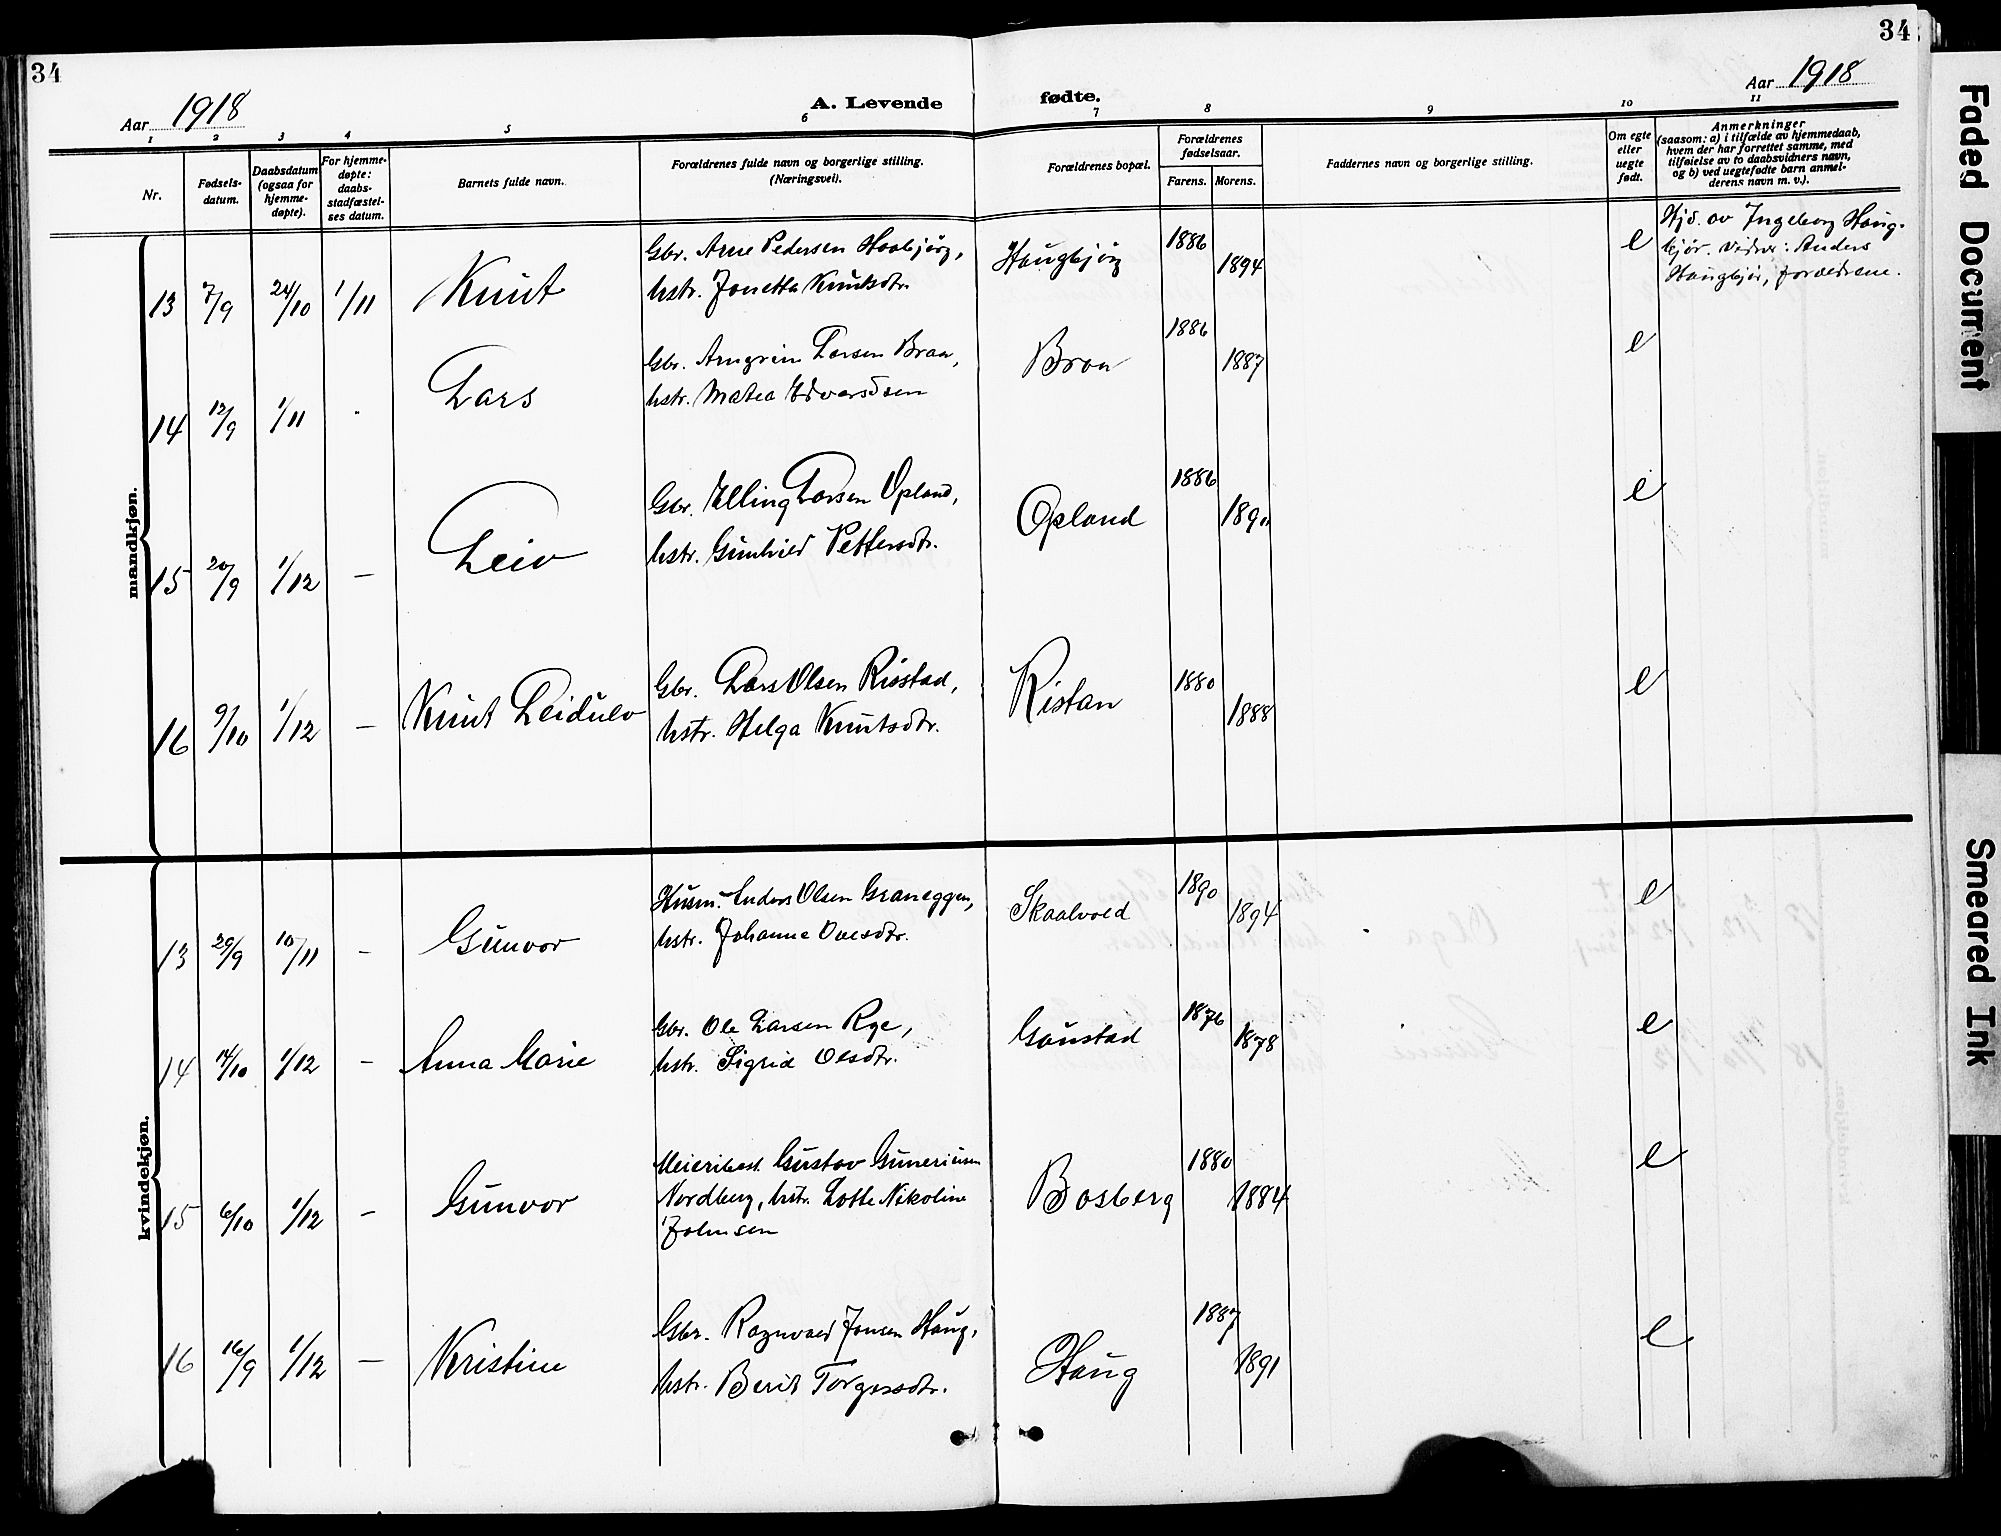 34
34
Aar 1918
A. Levende
fødte.
Aar 1918
1 2 3 4 5 6 7 8 9 10 11
Nr.
Fødsels-
datum.
Daabsdatum
(ogsaa for
hjemme-
døpte).
For hjemme-
døpte:
daabs-
stadfæstel-
ses datum.
Barnets fulde navn.
Forældrenes fulde navn og borgerlige stilling.
(Næringsvei).
Forældrenes bopæl.
Forældrenes
fødselsaar.
Farens. Morens.
Faddernes navn og borgerlige stilling.
Om egte
eller
uegte
født.
Anmerkninger
(saasom: a) i tilfælde av hjemmedaab,
hvem der har forrettet samme, med
tilføielse av to daabsvidners navn,
og b) ved uegtefødte barn anmel-
derens navn m. v.).
mandkjøn.
13 7/9 24/10 1/11 Knut
Gbr. Arne Pedersen
hstr. Jonetta Knutsdtr.
Haugbjør 1886 1894 e
Hjd. av Ingeborg Haug-
bjør. Vidner: Anders
Haugbjør, forældrene.
14 12/9 1/11 Lars
Gbr. Arngrim Larsen Braa,
hstr. Matea Edvardsen
Braa 1886 1887 e
15 20/9 1/12 – Leiv
Gbr. Elling Larsen Opland,
hstr. Gunhild Pettersdtr.
Opland 1886 e
16 9/10 1/12 – Knut Leidulv
Gbr. Lars Olsen Risstad,
hstr. Helga Knutsdtr.
Ristan 1880 1888 e
kvindekjøn.
13 29/9 10/11 – Gunvor
Husm. Anders Olsen Graneggen,
hstr. Johanne Olesdtr.
Skaalvold 1890 1894 e
14 14/10 1/12 – Anna Marie
Gbr. Ole Larsen Rye,
hstr. Sigrid Olsdtr.
Gaustad 1876 1878 e
15 6/10 1/12 – Gunvor
Meieribest. Gustav Guneriusen
Nordberg, hstr. Lotte Nikoline
Johnsen
Bosberg 1880 1884 e
16 16/9 1/12 – Kristine
Gbr. Ragnvald Jonsen Haug,
hstr. Berit Torgersdtr.
Haug 1887 1891 e
Faded Document
Smeared Ink